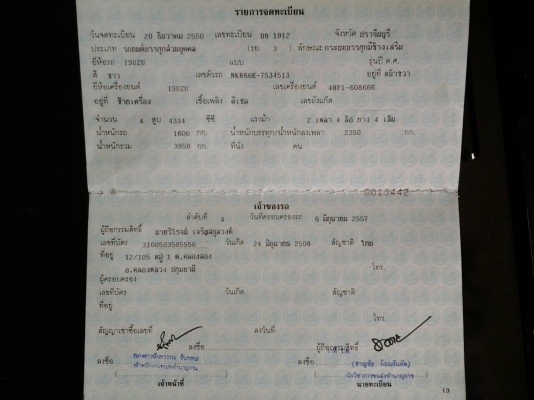 รายการจดทะเบียน
วันจดทะเบียน 20 ธันวาคม 2550 เลขทะเบียน บธ 1912 จังหวัด ปราจีนบุรี
ประเภท รถยนต์บรรทุกส่วนบุคคล (รย. 3 ) ลักษณะ กระบะบรรทุกมีข้างเสริม
ยี่ห้อรถ ISUZU แบบ รุ่นปี ค.ศ.
สี ขาว เลขตัวรถ NKR66E-7534513 อยู่ที่ คัสซีขวา
ยี่ห้อเครื่องยนต์ ISUZU เลขเครื่องยนต์ 4HF1-608666
อยู่ที่ ซ้ายเครื่อง เชื้อเพลิง ดีเซล เลขถังแก๊ส
จำนวน 4 สูบ 4334 ซีซี แรงม้า 2 เพลา 4 ล้อ ยาง 4 เส้น
น้ำหนักรถ 1600 กก. น้ำหนักบรรทุก/น้ำหนักลงเพลา 2350 กก.
น้ำหนักรวม 3950 กก. ที่นั่ง คน
เจ้าของรถ
ลำดับที่ 4 วันที่ครอบครองรถ 6 มิถุนายน 2557
ผู้ถือกรรมสิทธิ์ นายวิโรจน์
เลขที่บัตร 3100503505556 วันเกิด 24 มิถุนายน 2508 สัญชาติ ไทย
ที่อยู่ 12/105 หมู่ 1 ต.คลองสอง
อ.คลองหลวง ปทุมธานี โทร.
ผู้ครอบครอง
เลขที่บัตร วันเกิด สัญชาติ
ที่อยู่
โทร.
สัญญาเช่าซื้อเลขที่ ลงวันที่
ลงชื่อ ผู้ถือกรรมสิทธิ์
ลงชื่อ ลงชื่อ
เจ้าหน้าที่ นายทะเบียน
13